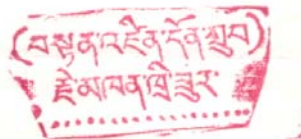 (བསྟན་འཛིན་དོན་གྲུབ)
རྡེ་མཁན་ཁྲི་ཟུར་